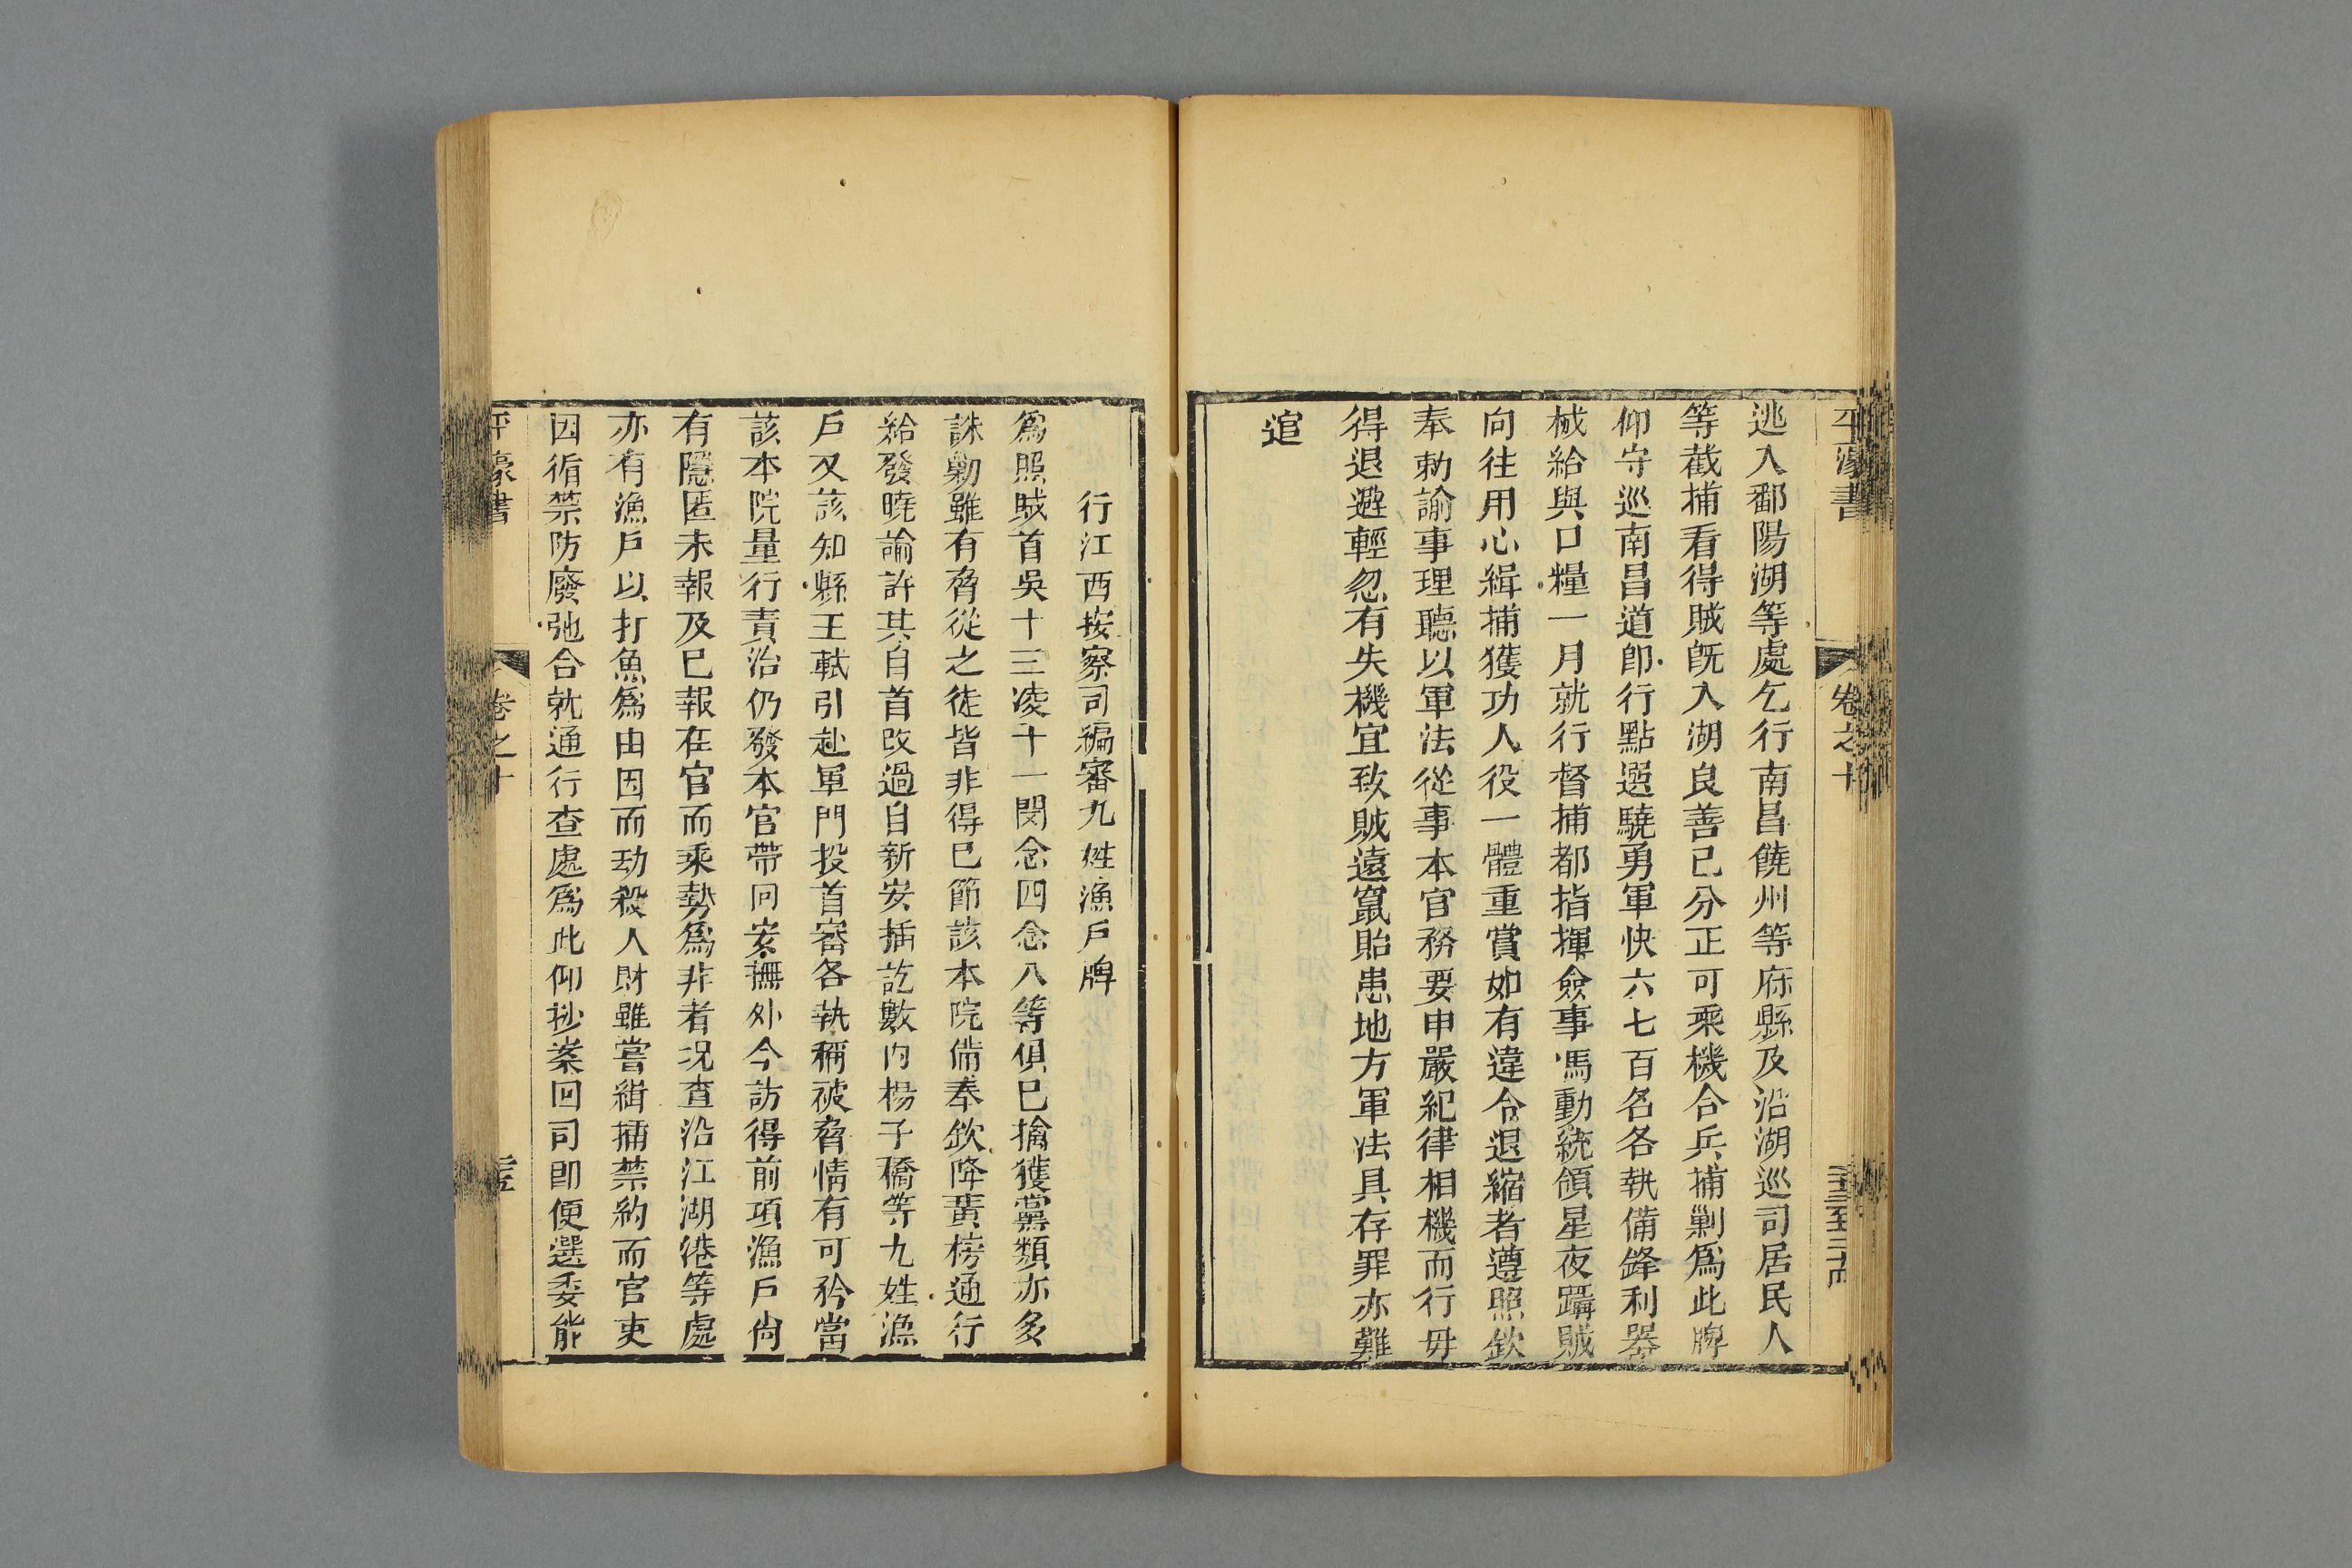 平濠書
卷之十
逃入鄱陽湖等處乞行南昌饒州等府縣及沿湖巡司居民人
等截捕看得賊旣入湖良善已分正可乘機合兵捕剿爲此牌
仰守巡南昌道卽行點選驍勇軍快六七百名各執備鋒利器
械給與口糧一月就行督捕都指揮僉事馮勳統領星夜躡賊
向往用心緝捕獲功人役一體重賞如有違令退縮者遵照欽
奉勅諭事理聽以軍法從事本官務要申嚴紀律相機而行毋
得退避輕忽有失機宜致賊遠竄貽患地方軍法具存罪亦難
逭
行江西按察司編審九姓漁戶牌
爲照賊首吳十三凌十一閔念四念八等俱已擒獲黨類亦多
誅勦雖有脅從之徒皆非得已節該本院備奉欽降黃榜通行
給發曉諭許其自首改過自新安插訖數內楊子橋等九姓漁
戶又該知縣王軾引赴軍門投首審各執稱被脅情有可矜當
該本院量行責治仍發本官帶回安撫外今訪得前項漁戶尙
有隱匿未報及已報在官而乘勢爲非者况查沿江湖港等處
亦有漁戶以打魚爲由因而劫殺人財雖嘗緝捕禁約而官吏
因循禁防廢弛合就通行查處爲此仰抄案回司卽便選委能
平濠書
卷之十